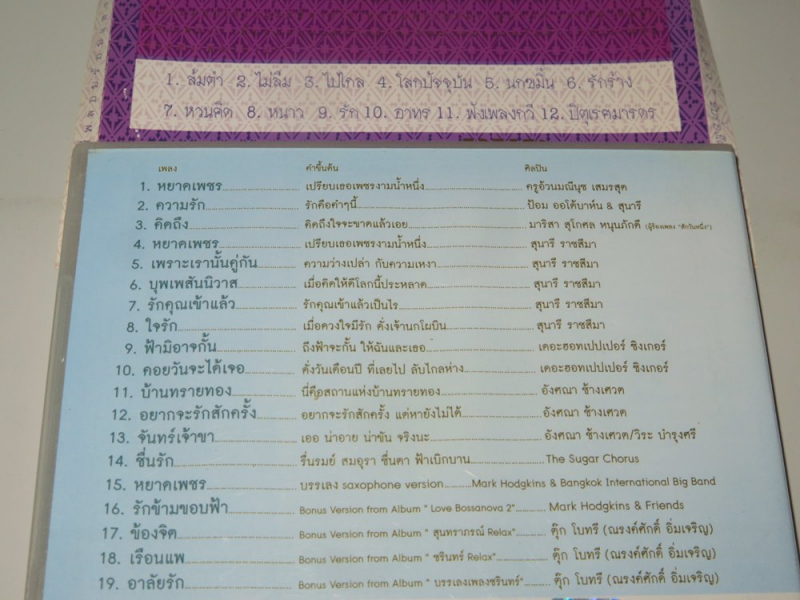 1. ส้มตำ 2. ไม่ลืม 3. ไปไกล 4. โลกปัจจุบัน 5. นกขมิ้น 6. รักร้าง
7. หวนคิด 8. หนาว 9. รัก 10. อาทร 11. ฟังเพลงกวี 12. ปิตุเรศมารดร
เพลง คำขึ้นต้น ศิลปิน
1. หยาดเพชร เปรียบเธอเพชรงามน้ำหนึ่ง ครูอ้วนมณีนุช เสมรสุต
2. ความรัก รักคือคำๆนี้ ป้อม ออโต้บาห์น & สุนารี
3. คิดถึง คิดถึงใจจะขาดแล้วเอย มาริสา สุโกศล หนุนภักดี (ผู้ร้องเพลง "สักวันหนึ่ง")
4. หยาดเพชร เปรียบเธอเพชรงามน้ำหนึ่ง สุนารี ราชสีมา
5. เพราะเรานั้นคู่กัน ความว่างเปล่า กับความเหงา สุนารี ราชสีมา
6. บุพเพสันนิวาส เมื่อคิดให้ดีโลกนี้ประหลาด สุนารี ราชสีมา
7. รักคุณเข้าแล้ว รักคุณเข้าแล้วเป็นไร สุนารี ราชสีมา
8. ใจรัก เมื่อดวงใจมีรัก ดั่งเจ้านกโผบิน สุนารี ราชสีมา
9. ฟ้ามิอาจกั้น ถึงฟ้าจะกั้น ให้ฉันและเธอ เดอะฮอทเปปเปอร์ ซิงเกอร์
10. คอยวันจะได้เจอ ดั่งวันเดือนปี ที่เลยไป ลับไกลห่าง เดอะฮอทเปปเปอร์ ซิงเกอร์
11. บ้านทรายทอง นี่คือสถานแห่งบ้านทรายทอง อังศณา ช้างเศวต
12. อยากจะรักสักครั้ง อยากจะรักสักครั้ง แต่หายังไม่ได้ อังศณา ช้างเศวต
13. จันทร์เจ้าขา เออ น่าอาย น่าขัน จริงนะ อังศณา ช้างเศวต/วิระ บำรุงศรี
14. ชื่นรัก รื่นรมย์ สมอุรา ชื่นตา ฟ้าเบิกบาน The Sugar Chorus
15. หยาดเพชร บรรเลง saxophone version Mark Hodgkins & Bangkok International Big Band
16. รักข้ามขอบฟ้า Bonus Version from Album " Love Bossanova 2" Mark Hodgkins & Friends
17. ข้องจิต Bonus Version from Album " สุนทราภรณ์ Relax" ตุ๊ก โบทรี (ณรงค์ศักดิ์ อิ่มเจริญ)
18. เรือนแพ Bonus Version from Album " ชรินทร์ Relax" ตุ๊ก โบทรี (ณรงค์ศักดิ์ อิ่มเจริญ)
19. อาลัยรัก Bonus Version from Album " บรรเลงเพลงชรินทร์" ตุ๊ก โบทรี (ณรงค์ศักดิ์ อิ่มเจริญ)